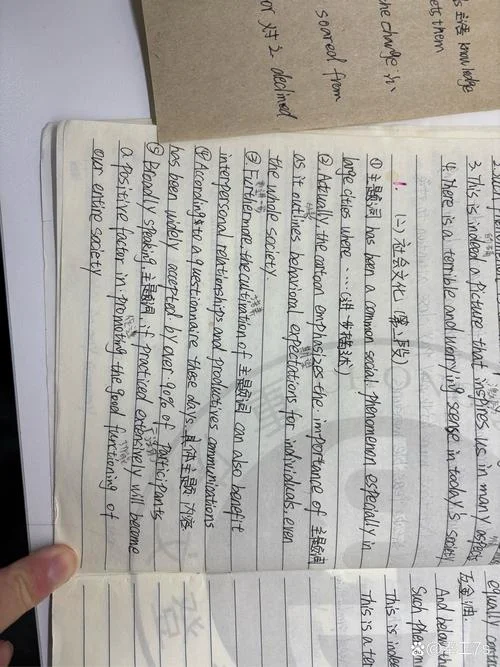 3. This is indeen a picture that inspires us in many aspects
4. There is a terrible and worrying scense in today's society
! (二) 社会文化 (第二段)
① 主题词 has been a common social phenomenon especially in
large cities where ····(进一步描述)
② Actually, the cartoon emphasises the importance of 主题词
as it outlines behavioral expectations for individuals, even
the whole society.
③ Furthermore, the cultivation of 主题词 can also benefit
interpersonal relationships and productives communications
④ According to a questionnaire these days 具体主题内容
has been widely accepted by over 90% of participants
⑤ Broadly speaking, 主题词, if practiced extensively will become
a positive factor in promoting the good functioning of
our entire society
knowledge
them
the change in
soared from
or 对2 declined
equally
And
Such
This is
This is a